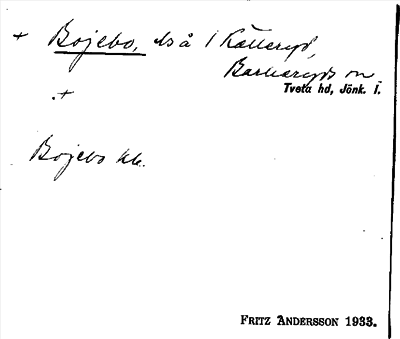 + Bojebo, ds å 1 Källeryd,
Barkeryds sn
Tveta hd, Jönk. l.
.+
Bojebo kk.
FRITZ ANDERSSON 1933.